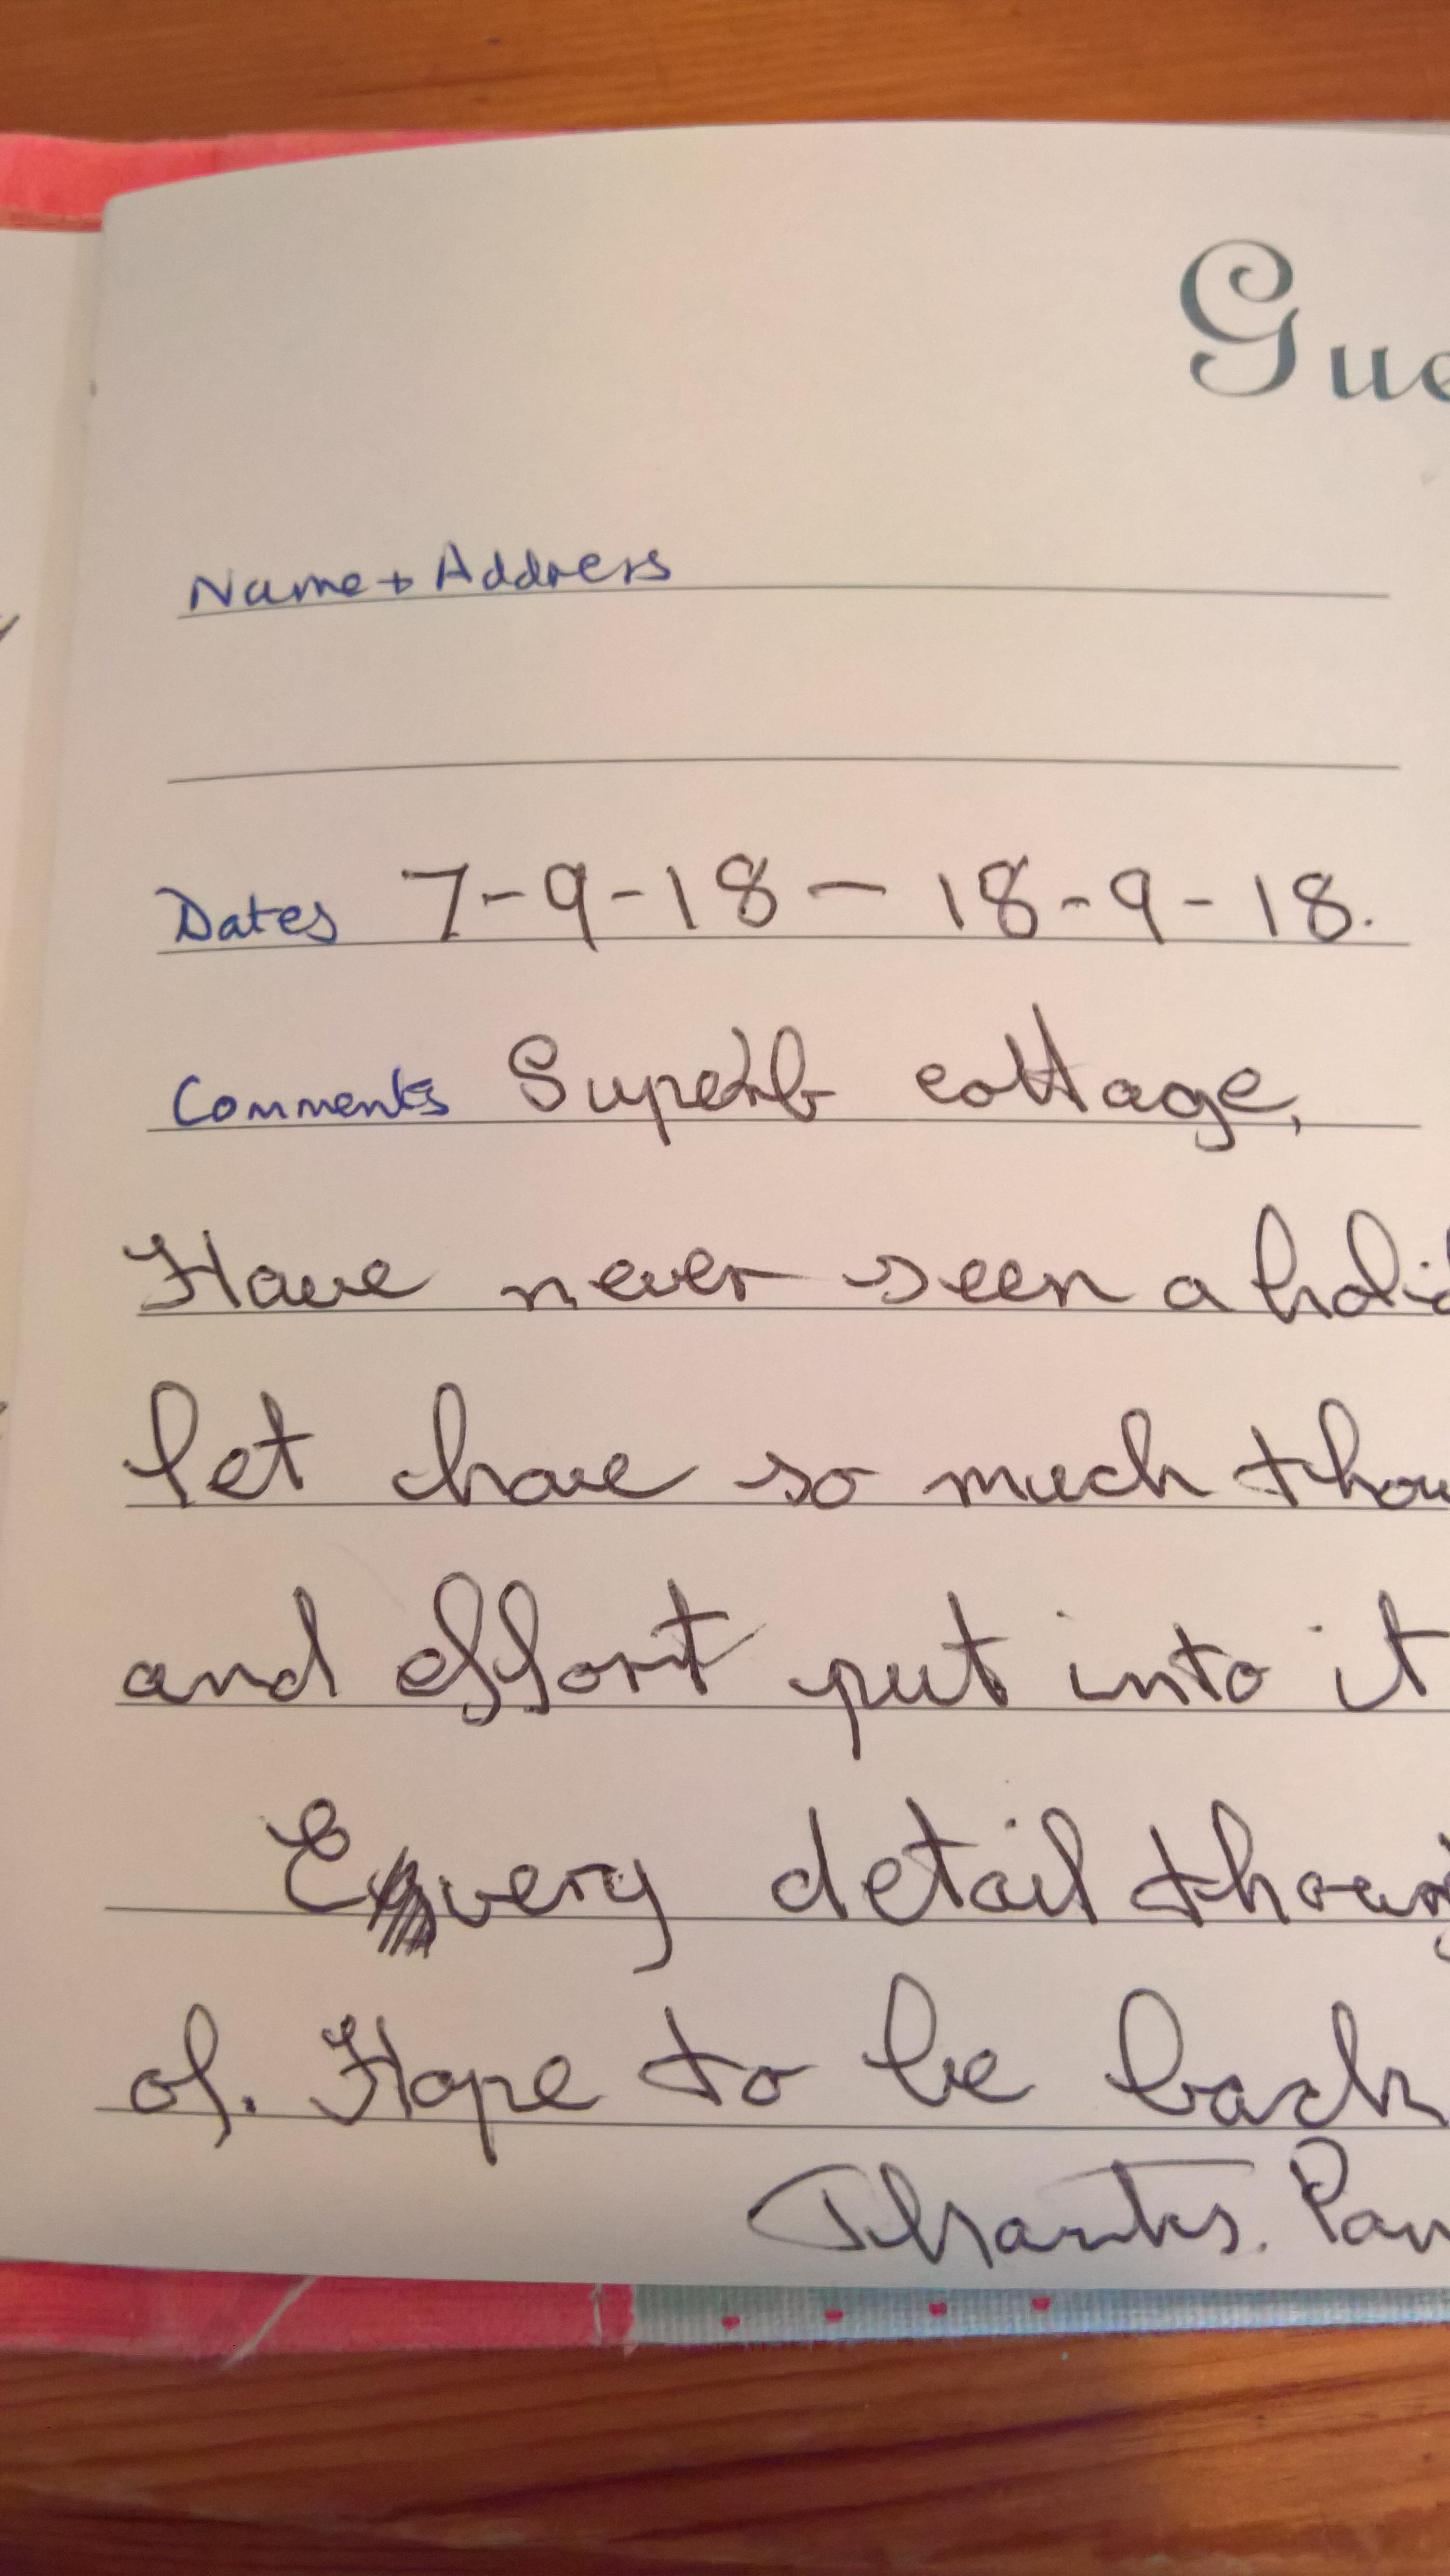 Gue
Name + Address
Dates 7-9-18 — 18-9-18.
Comments Superb cottage,
Have never seen a holid
let have so much thou
and effort put into it
Every detail thoug
of. Hope to be back
Thanks. Pau